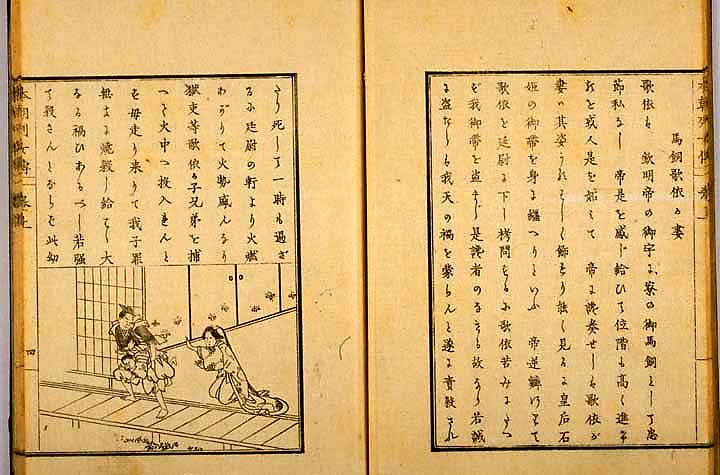 馬飼歌依が妻
歌依は 欽明帝の御宇に寮の御馬飼として忠
節私なし 帝是を感じ給ひて位階も高く進む
を或人是を妬みて 帝に讒奏せしは歌依が
妻の其姿うれはしく飾より能く見るに皇后石
姫の御帯を身に纏へりといふ 帝逆鱗まして
歌依を廷尉に下し拷問するに歌依苦み
我御帯を盗まず是讒者の故なり若誠
に盗ならば我天の禍を蒙らんと遂に責殺され
たり死して一時も過ざ
るに廷尉の軒より火燃
あがりて火勢盛んなり
獄吏等歌依が子兄弟を捕
つて火中へ投入れんと
を母走り来りて我子罪
無きに焼殺し給はば大
なる禍ひあるべし若強
て殺さんとならば此幼
四